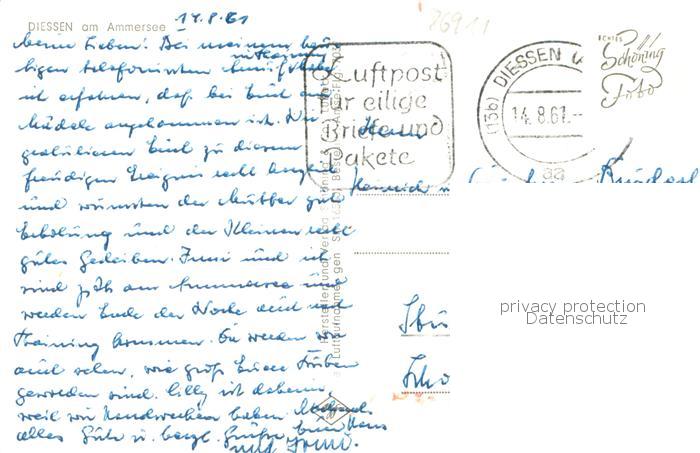 DIESSEN am Ammersee 14.8.61
Meine Lieben! Bei meinem heu-
tigen telefonischen Anruf
ich erfahren, daß bei Euch ein
Mädele angekommen ist. Wir
gratulieren Euch zu diesem
freudigen Ereignis recht herzlich
und wünschen der Mutter gute
Erholung und der Kleinen recht
gutes Gedeihen. und ich
sind jetzt am Ammersee und
werden Ende der Woche auch nach
kommen. Da werden wir
auch sehen, wie groß Eure Buben
geworden sind. Cilly ist daheim,
weil wir Handwerker haben.
alles Gute u. herzl. Grüße Euer Hans
und
Luftpost
für eilige
Briefe und
Pakete
DIESSEN
(13b)
14.8.61.--
aa
ECHTES
Schöning
Foto
Herrn
Heinrich
privacy protection
Datenschutz